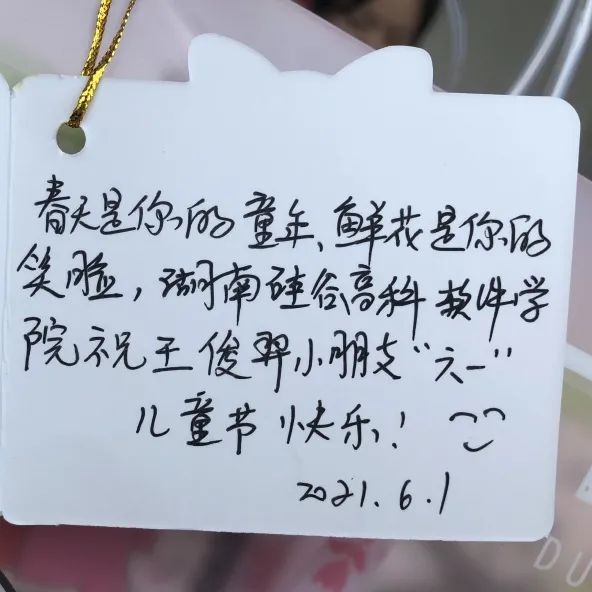 春天是你的童年、鲜花是你的
笑脸，湖南硅谷高科软件学
院祝王俊羿小朋友“六一”
儿童节快乐！
2021.6.1
DU